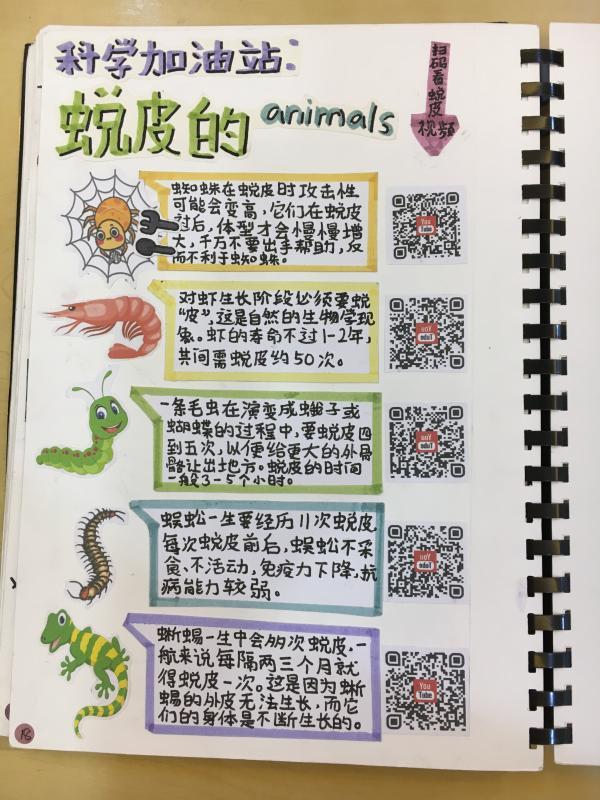 科学加油站:
蜕皮的 animals
扫码看蜕皮视频
蜘蛛在蜕皮时攻击性
可能会变高,它们在蜕皮
过后,体型才会慢慢增
大,千万不要出手帮助,反
而不利于蜘蛛。
You
Tube
对虾生长阶段必须要蜕
“皮”,这是自然的生物学现
象。虾的寿命不过1-2年,
其间需蜕皮约50次。
You
Tube
一条毛虫在演变成蛾子或
蝴蝶的过程中,要蜕皮四
到五次,以便给更大的外骨
骼让出地方。蜕皮的时间
一般3-5个小时。
You
Tube
蜈蚣一生要经历11次蜕皮.
每次蜕皮前后,蜈蚣不采
食、不活动,免疫力下降,抗
病能力较弱。
You
Tube
蜥蜴一生中会多次蜕皮.一
般来说每隔两三个月就
得蜕皮一次。这是因为蜥
蜴的外皮无法生长,而它
们的身体是不断生长的。
You
Tube